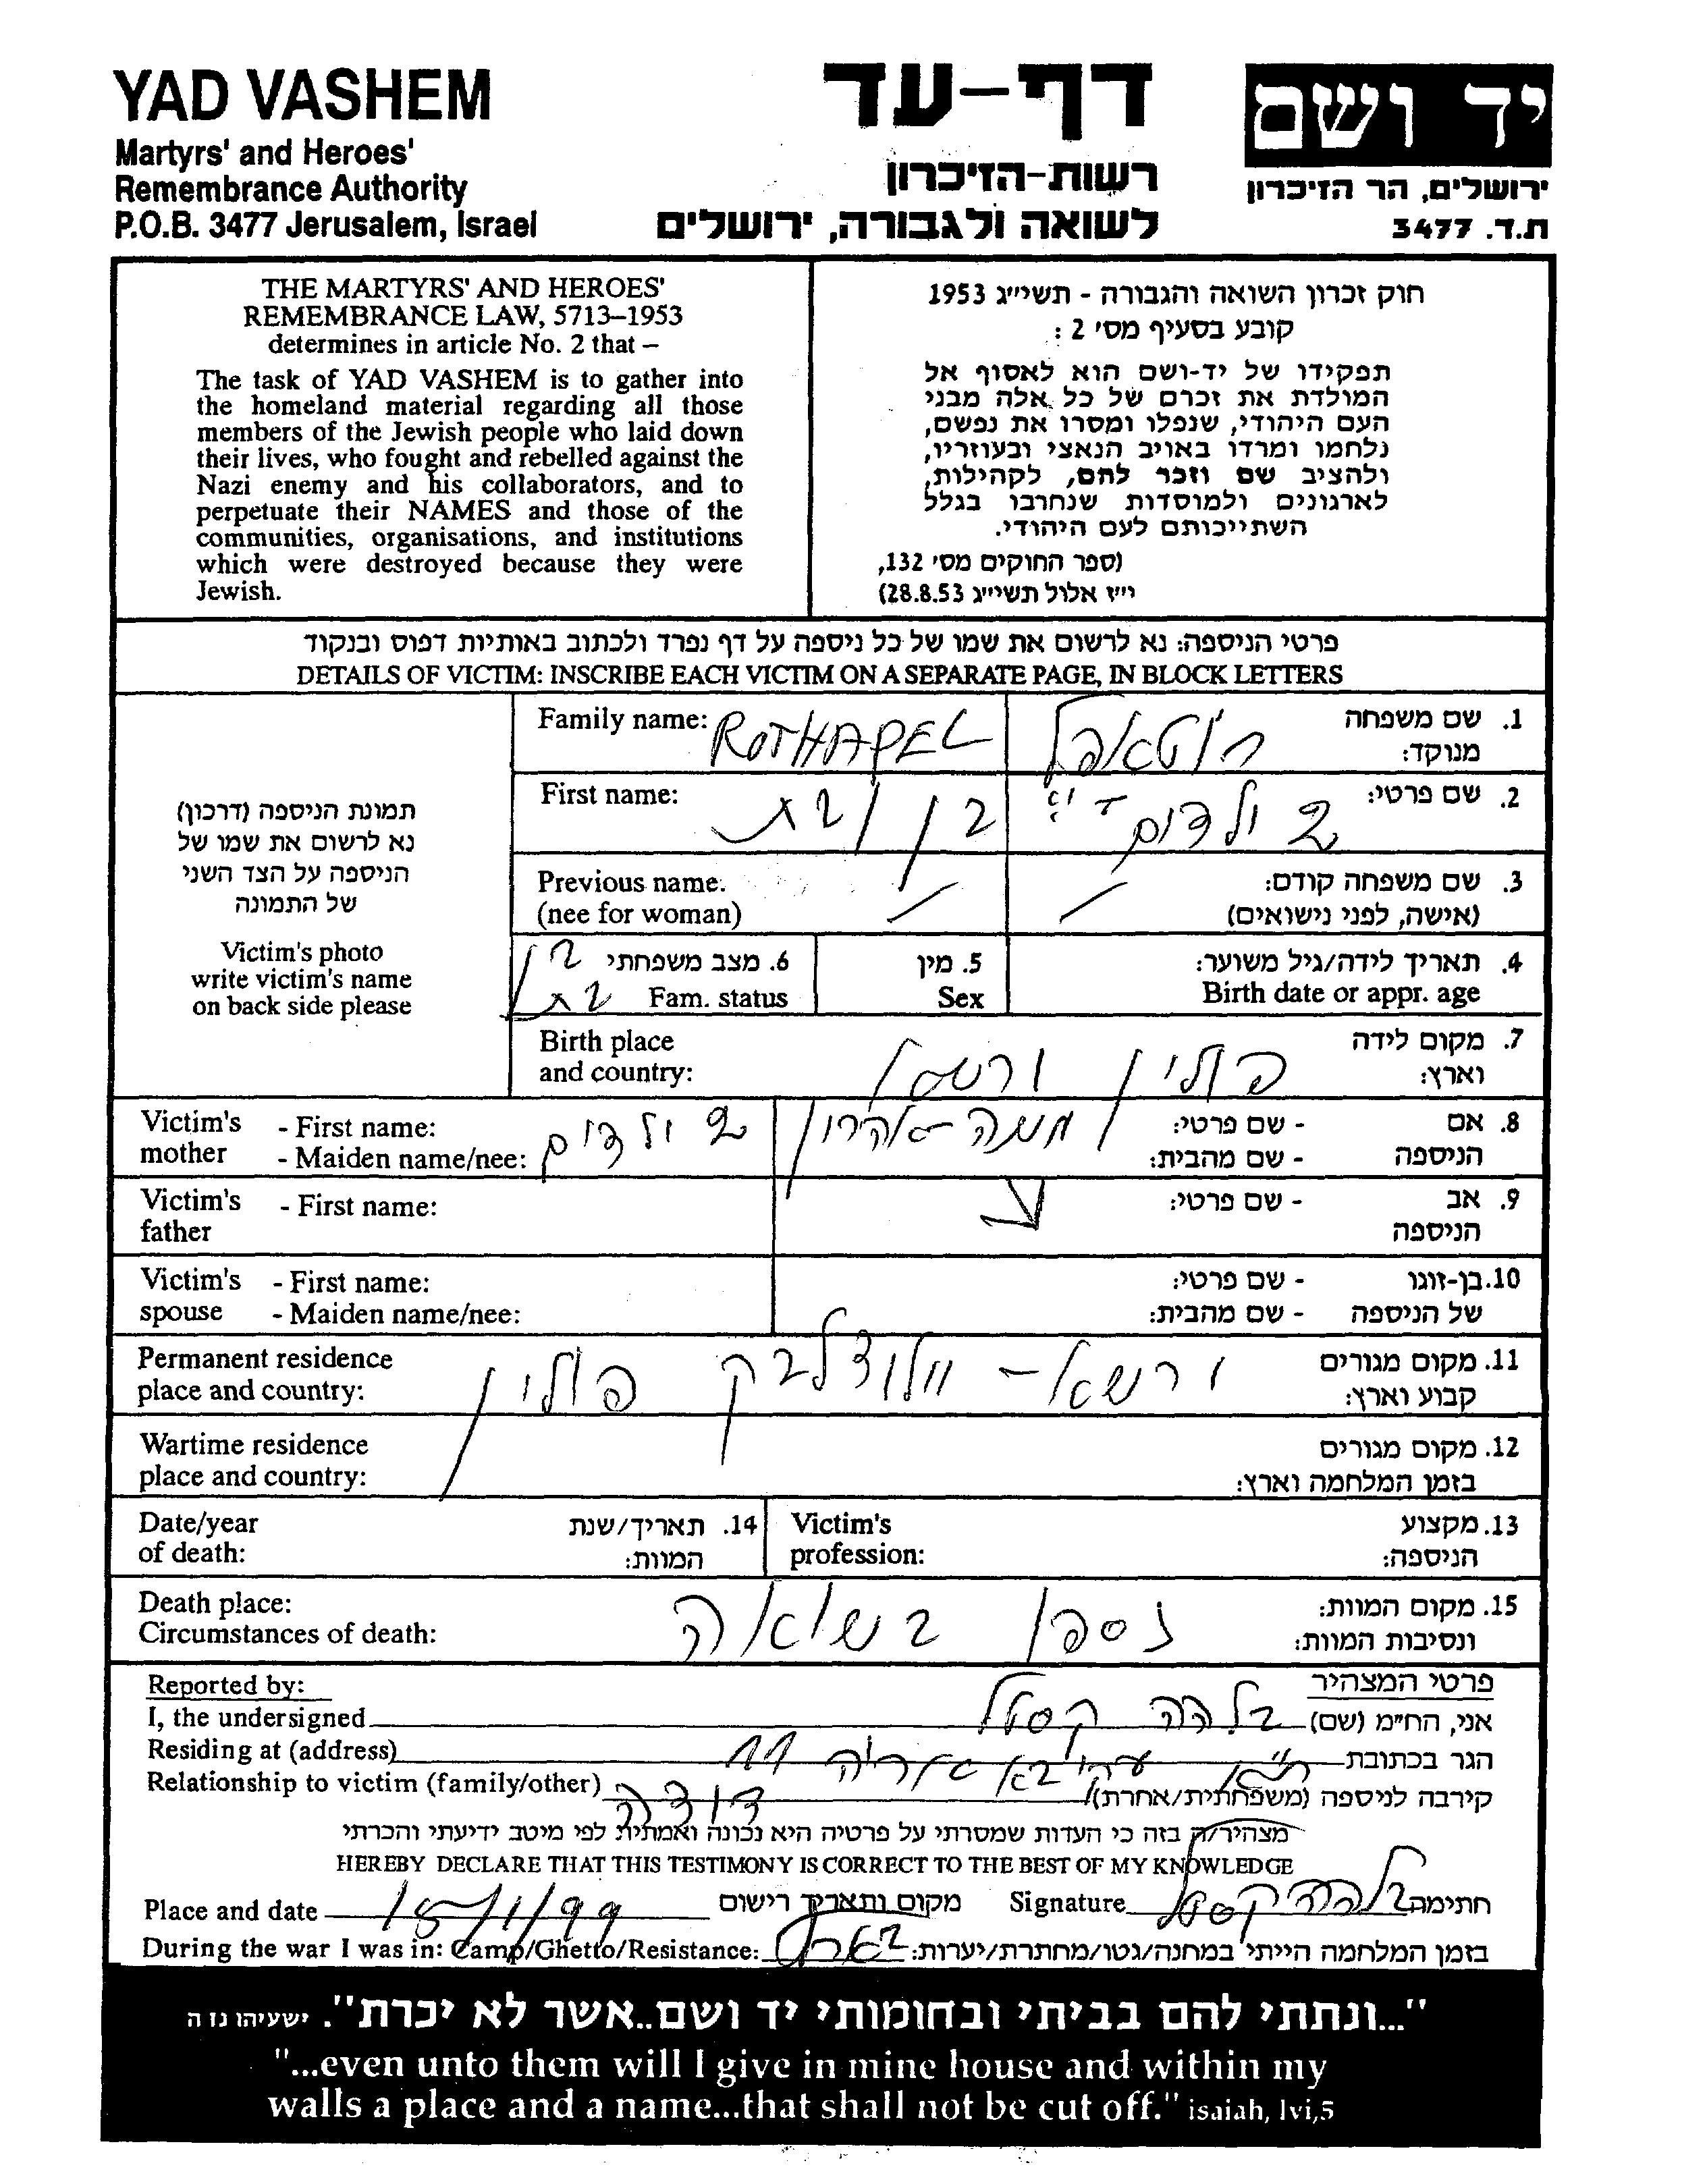 YAD VASHEM
Martyrs' and Heroes'
Remembrance Authority
P.O.B. 3477 Jerusalem, Israel
דף-עד
רשות-הזיכרון
לשואה ולגבורה, ירושלים
יד ושם
ירושלים, הר הזיכרון
ת.ד. 3477
THE MARTYRS' AND HEROES'
REMEMBRANCE LAW, 5713–1953
determines in article No. 2 that –
The task of YAD VASHEM is to gather into
the homeland material regarding all those
members of the Jewish people who laid down
their lives, who fought and rebelled against the
Nazi enemy and his collaborators, and to
perpetuate their NAMES and those of the
communities, organisations, and institutions
which were destroyed because they were
Jewish.
חוק זכרון השואה והגבורה - תשי״ג 1953
קובע בסעיף מס׳ 2 :
תפקידו של יד-ושם הוא לאסוף אל
המולדת את זכרם של כל אלה מבני
העם היהודי, שנפלו ומסרו את נפשם,
נלחמו ומרדו באויב הנאצי ובעוזריו,
ולהציב שם וזכר להם, לקהילות,
לארגונים ולמוסדות שנחרבו בגלל
השתייכותם לעם היהודי.
(ספר החוקים מס׳ 132,
י״ז אלול תשי״ג 28.8.53)
פרטי הניספה: נא לרשום את שמו של כל ניספה על דף נפרד ולכתוב באותיות דפוס ובנקוד
DETAILS OF VICTIM: INSCRIBE EACH VICTIM ON A SEPARATE PAGE, IN BLOCK LETTERS
תמונת הניספה (דרכון)
נא לרשום את שמו של
הניספה על הצד השני
של התמונה
Victim's photo
write victim's name
on back side please
Family name: ROTHAPEL רוטאפל 1. שם משפחה
מנוקד:
First name: בן/בת 2. שם פרטי:
Previous name:
(nee for woman)
3. שם משפחה קודם:
(אישה, לפני נישואים)
4. תאריך לידה/גיל משוער:
Birth date or appr. age
5. מין
Sex
6. מצב משפחתי בן/
Fam. status בת
Birth place
and country:
פולין ורשא
7. מקום לידה
וארץ:
Victim's mother
- First name:
- Maiden name/nee:
משה-אהרון
8. אם הניספה
- שם פרטי:
- שם מהבית:
Victim's father
- First name:
9. אב הניספה
- שם פרטי:
Victim's spouse
- First name:
- Maiden name/nee:
10. בן-זוגו של הניספה
- שם פרטי:
- שם מהבית:
Permanent residence
place and country:
ורשא - פולין
11. מקום מגורים
קבוע וארץ:
Wartime residence
place and country:
12. מקום מגורים
בזמן המלחמה וארץ:
Date/year
of death:
14. תאריך/שנת
המוות:
Victim's
profession:
13. מקצוע
הניספה:
Death place:
Circumstances of death:
נספו בשואה
15. מקום המוות:
ונסיבות המוות:
Reported by:
פרטי המצהיר
I, the undersigned בלהה קסטל אני, הח״מ (שם)
Residing at (address) 11 הגר בכתובת
Relationship to victim (family/other) דודה קירבה לניספה (משפחתית/אחרת)
מצהיר/ה בזה כי העדות שמסרתי על פרטיה היא נכונה ואמתית לפי מיטב ידיעתי והכרתי
HEREBY DECLARE THAT THIS TESTIMONY IS CORRECT TO THE BEST OF MY KNOWLEDGE
Place and date 15/1/99 מקום ותאריך רישום Signature בלהה קסטל חתימה
During the war I was in: Camp/Ghetto/Resistance: בזמן המלחמה הייתי במחנה/גטו/מחתרת/יערות:
"...ונתתי להם בביתי ובחומותי יד ושם..אשר לא יכרת". ישעיהו נו ה
"...even unto them will I give in mine house and within my
walls a place and a name...that shall not be cut off." isaiah, lvi,5